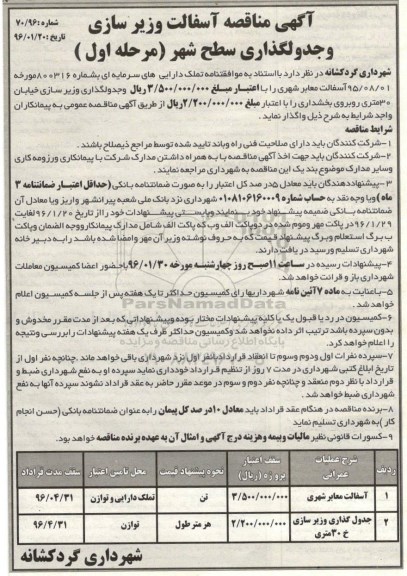 آگهی مناقصه آسفالت وزیر سازی
وجدولگذاری سطح شهر (مرحله اول )
شماره :۷۰/۹۶
تاریخ :۹۶/۰۱/۲۰
شهرداری گردکشانه در نظر دارد بااستناد به موافقتنامه تملک دارایی های سرمایه ای بشماره ۸۰۰۳۱۶مورخه
۹۵/۰۸/۰۱آسفالت معابر شهری را با اعتبار مبلغ ۳/۵۰۰/۰۰۰/۰۰۰ ریال وجدولگذاری وزیر سازی خیابان
۳۰متری روبروی بخشداری را با اعتبار مبلغ ۲/۲۰۰/۰۰۰/۰۰۰ریال از طریق آگهی مناقصه عمومی به پیمانکاران
واجد شرایط به شرح ذیل واگذار نماید .
شرایط مناقصه
۱-شرکت کنندگان باید دارای صلاحیت فنی راه وباند تایید شده توسط مراجع ذیصلاح باشند .
۲-شرکت کنندگان باید جهت اخذ آگهی مناقصه با به همراه داشتن مدارک شرکت یا پیمانکاری ورزومه کاری
وسایر مدارک موضوع بند یک این مناقصه به شهرداری مراجعه نمایند .
۳-پیشنهاددهندگان باید معادل ۵در صد کل اعتبار را به صورت ضمانتنامه بانکی (حداقل اعتبار ضمانتنامه ۳
ماه ) ویا وجه نقد به حساب شماره ۰۱۰۸۱۰۶۱۶۰۰۰۹ شهرداری نزد بانک ملی شعبه پیرانشهر واریز ویا معادل آن
ضمانتنامه بانکی ضمیمه پیشنهاد خود نمایند وبایستی پیشنهادات خود را از تاریخ ۹۶/۱/۲۰ لغایت
۹۶/۱/۲۹ در پاکت مهر وموم شده در دوپاکت الف وب که پاکت الف شامل مدارک پیمانکار ووجه الضمان وپاکت
ب برگ استعلام وبرگ پیشنهاد قیمت که به حروف نوشته وزیر آن مهر وامضا شده باشد را به دبیر خانه
شهرداری تسلیم ورسید دریافت دارند.
۴-پیشنهادات رسیده در ساعت ۱۱صبح روز چهارشنبه مورخه ۹۶/۰۱/۳۰ باحضور اعضا کمیسیون معاملات
شهرداری باز و قرائت خواهد شد.
۵-باعنایت به ماده ۷آئین نامه شهرداریها رای کمیسیون حداکثر تا یک هفته پس از جلسه کمیسیون اعلام
خواهد شد .
۶-کمیسیون در رد یا قبول یک یا کلیه پیشنهادات مختار بوده وپیشنهاداتی که بعد از مدت مقرر مخدوش و
بدون سپرده باشد ترتیب اثر داده نخواهد شد وکمیسیون حداکثر ظرف یک هفته پیشنهادات را بررسی ونتیجه
را اعلام خواهد کرد.
۷-سپرده نفرات اول ودوم وسوم تا انعقاد قرارداد بانفر اول نزد شهرداری باقی خواهد ماند .چنانچه نفر اول از
تاریخ ابلاغ کتبی شهرداری در مدت ۷ روز از تنظیم قرارداد خودداری نماید سپرده او به نفع شهرداری ضبط و
قرارداد با نفر دوم منعقد و چنانچه نفر دوم و سوم در موعد مقرر حاضر به عقد قرارداد نشوند سپرده آنها به نفع
شهرداری ضبط خواهد شد .
۸-برنده مناقصه در هنگام عقد قراداد باید معادل ۱۰در صد کل پیمان رابه عنوان ضمانتنامه بانکی (حسن انجام
کار )به شهرداری تسلیم نماید
۹-کسورات قانونی نظیر مالیات وبیمه وهزینه درج آگهی و امثال آن به عهده برنده مناقصه خواهد بود.
ردیف شرح عملیات عمرانی سقف اعتبار پروژه (ریال) نحوه پیشنهاد قیمت محل تامین اعتبار سقف مدت قراداد
۱ آسفالت معابر شهری ۳/۵۰۰/۰۰۰/۰۰۰ تن تملک دارایی و توازن ۹۶/۰۴/۳۱
۲ جدول گذاری وزیر سازی خ ۳۰متری ۲/۲۰۰/۰۰۰/۰۰۰ هر متر طول توازن ۹۶/۴/۳۱
شهرداری گردکشانه
ParsNamadData
پایگاه اطلاع رسانی مناقصه و مزایده